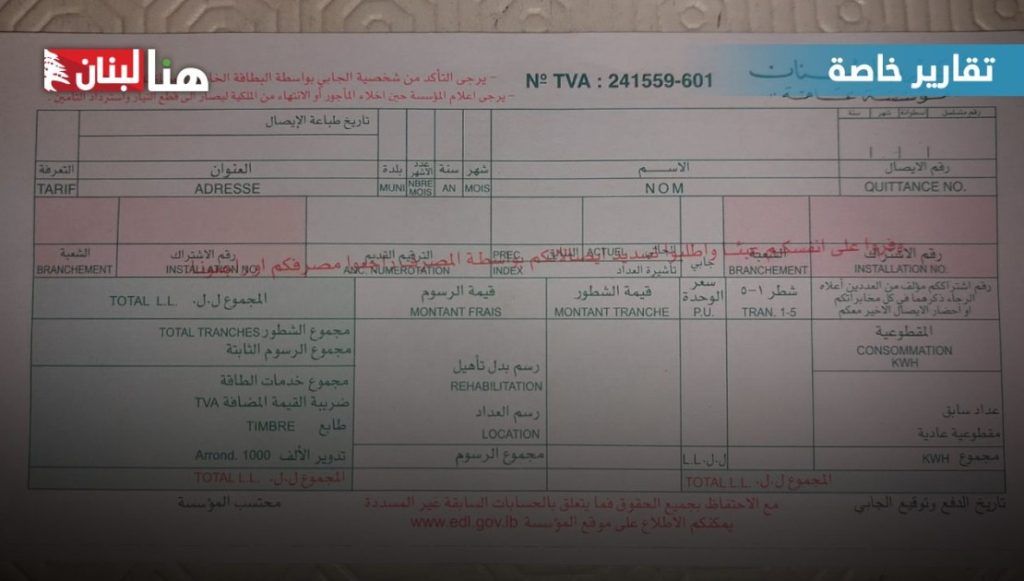 هنا لبنان
تقارير خاصة
- يرجى التأكد من شخصية الجابي بواسطة البطاقة
Nº TVA : 241559-601
مؤسسة عامة
- يرجى اعلام المؤسسة حين اخلاء المأجور أو الانتهاء من الملكية ليصار الى قطع التيار واسترداد التأمين.
رقم متسلسل اسطوانة شهر سنة
تاريخ طباعة الإيصال
رقم الايصال الاسم شهر سنة عدد الأشهر بلدة العنوان التعرفة
TARIF ADRESSE MUNI NBRE MOIS AN MOIS NOM QUITTANCE NO.
وفروا على انفسكم واطلبوا تسديد بواسطة المصرف مصرفكم او
رقم الاشتراك الشعبة جابي تأشيرة العداد الترقيم القديم رقم الاشتراك الشعبة
BRANCHEMENT INSTALLATION NO. ANC. NUMEROTATION PREC. INDEX ACTUEL BRANCHEMENT INSTALLATION NO.
رقم اشتراككم مؤلف من العددين أعلاه
الرجاء ذكرهما في كل مخابراتكم
او احضار الايصال الأخير معكم
شطر ١-٥ سعر الوحدة قيمة الشطور قيمة الرسوم المجموع ل.ل.
TOTAL L.L. MONTANT FRAIS MONTANT TRANCHE P.U. TRAN. 1-5
المقطوعية
CONSOMMATION
KWH
TOTAL TRANCHES مجموع الشطور
مجموع الرسوم الثابتة
رسم بدل تأهيل
REHABILITATION
مجموع خدمات الطاقة
ضريبة القيمة المضافة TVA
رسم العداد
LOCATION
عداد سابق
طابع TIMBRE
مقطوعية عادية
تدوير الألف Arrond. 1000
مجموع الرسوم
ل.ل. L.L.
مجموع KWH
المجموع ل.ل. TOTAL L.L.
المجموع ل.ل. TOTAL L.L.
تاريخ الدفع وتوقيع الجابي
مع الاحتفاظ بجميع الحقوق فما يتعلق بالحسابات السابقة غير المسددة
محتسب المؤسسة
يمكنكم الاطلاع على موقع المؤسسة www.edl.gov.lb